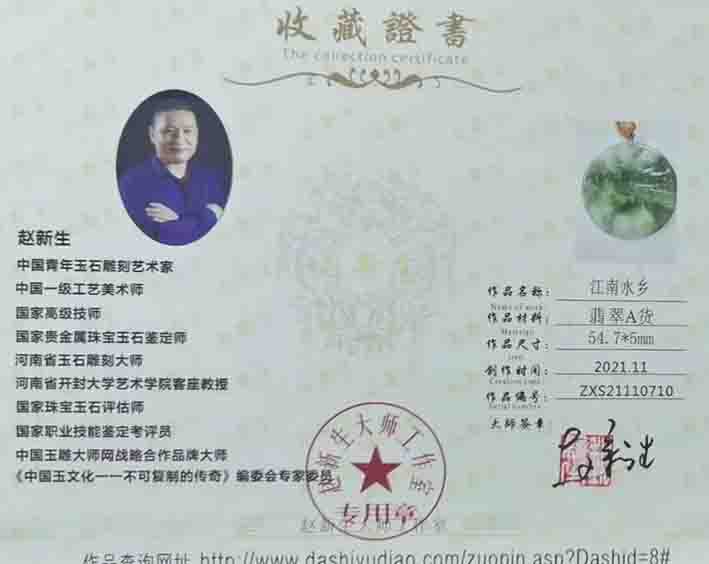 收藏證書
The collection certificate
赵新生
中国青年玉石雕刻艺术家
中国一级工艺美术师
国家高级技师
国家贵金属珠宝玉石鉴定师
河南省玉石雕刻大师
河南省开封大学艺术学院客座教授
国家珠宝玉石评估师
国家职业技能鉴定考评员
中国玉雕大师网战略合作品牌大师
《中国玉文化一一不可复制的传奇》编委会专家委员
作品名称: 江南水乡
Name of work
作品材料: 翡翠A货
Material
作品尺寸: 54.7*5mm
创作时间: 2021.11
Creation time
作品编号: ZXS21110710
Serial number
大师签章:
赵新生大师工作室
专用章
赵新生大师工作室
作品查询网址 http://www.dashiyudiao.com/zuopin.asp?Dashid=8#